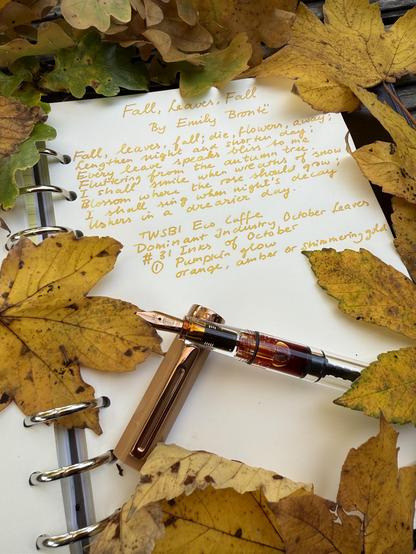 Fall, Leaves, Fall
By Emily Brontë
Fall, leaves, fall; die, flowers, away;
Lengthen night and shorten day;
Every leaf speaks bliss to me
Fluttering from the autumn tree.
I shall smile when wreaths of snow
Blossom where the rose should grow;
I shall sing when night's decay
Ushers in a drearier day.
TWSBI Eco Caffe
Dominant Industry October Leaves
#31 Inks of October
① Pumpkin glow
orange, amber or shimmering gold